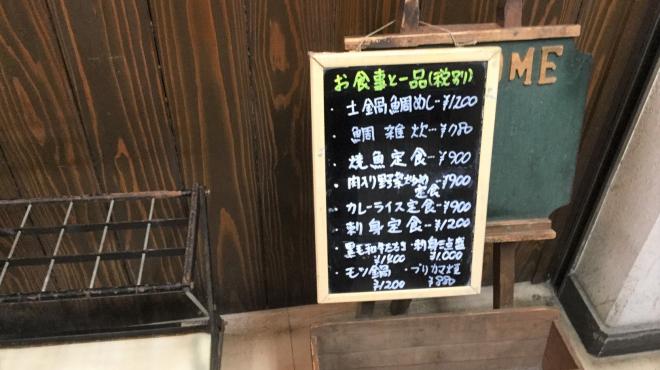 お食事と一品(税別)
・土鍋鯛めし…¥1200
・鯛雑炊…¥780
・焼魚定食…¥900
・肉入り野菜炒め定食…¥900
・カレーライス定食…¥900
・刺身定食…¥1200
・黒毛和牛たたき ¥1400 ・刺身三点盛 ¥1,000
・モツ鍋 ¥1200 ・ブリカマ焼 ¥880
ME